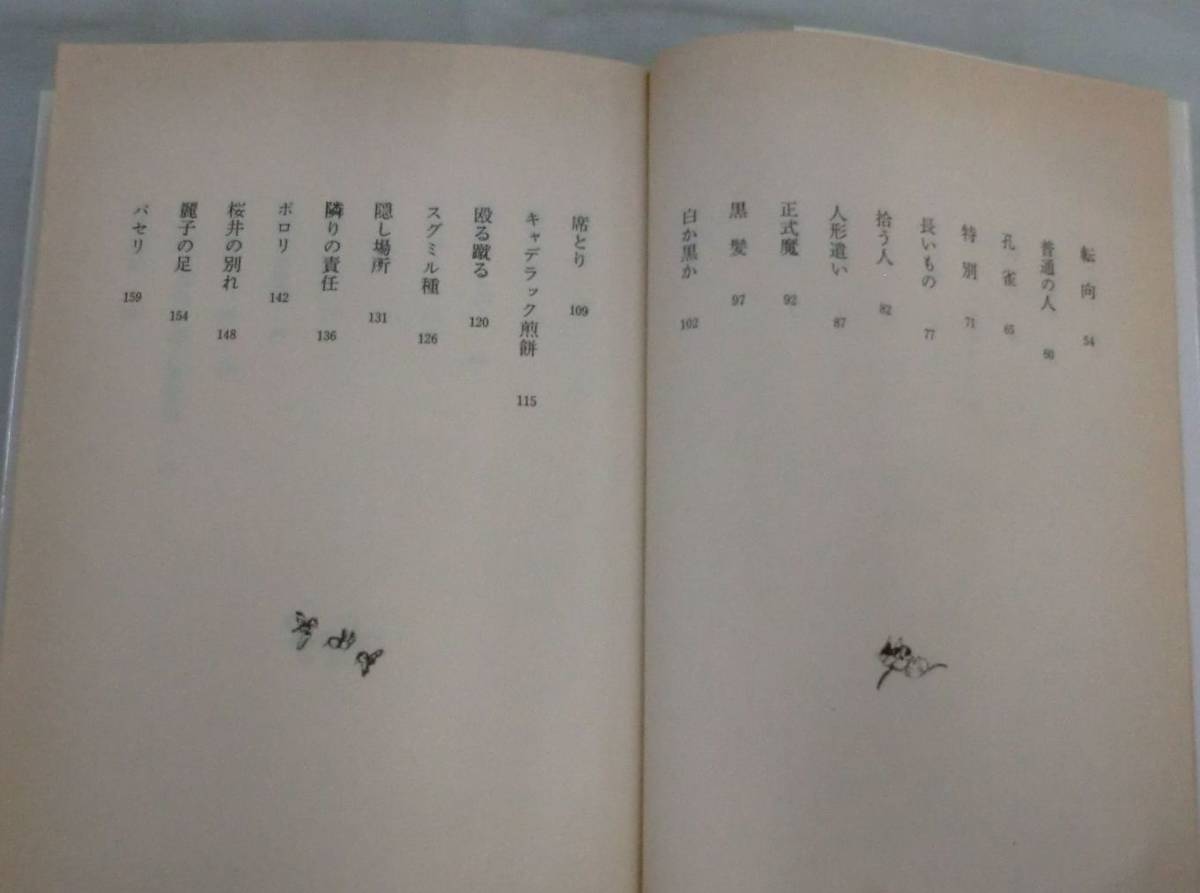 転向 54
普通の人 60
孔雀 65
特別 71
長いもの 77
拾う人 82
人形遣い 87
正式魔 92
黒髪 97
白か黒か 102
席とり 109
キャデラック煎餅 115
殴る蹴る 120
スグミル種 126
隠し場所 131
隣りの責任 136
ポロリ 142
桜井の別れ 148
麗子の足 154
パセリ 159